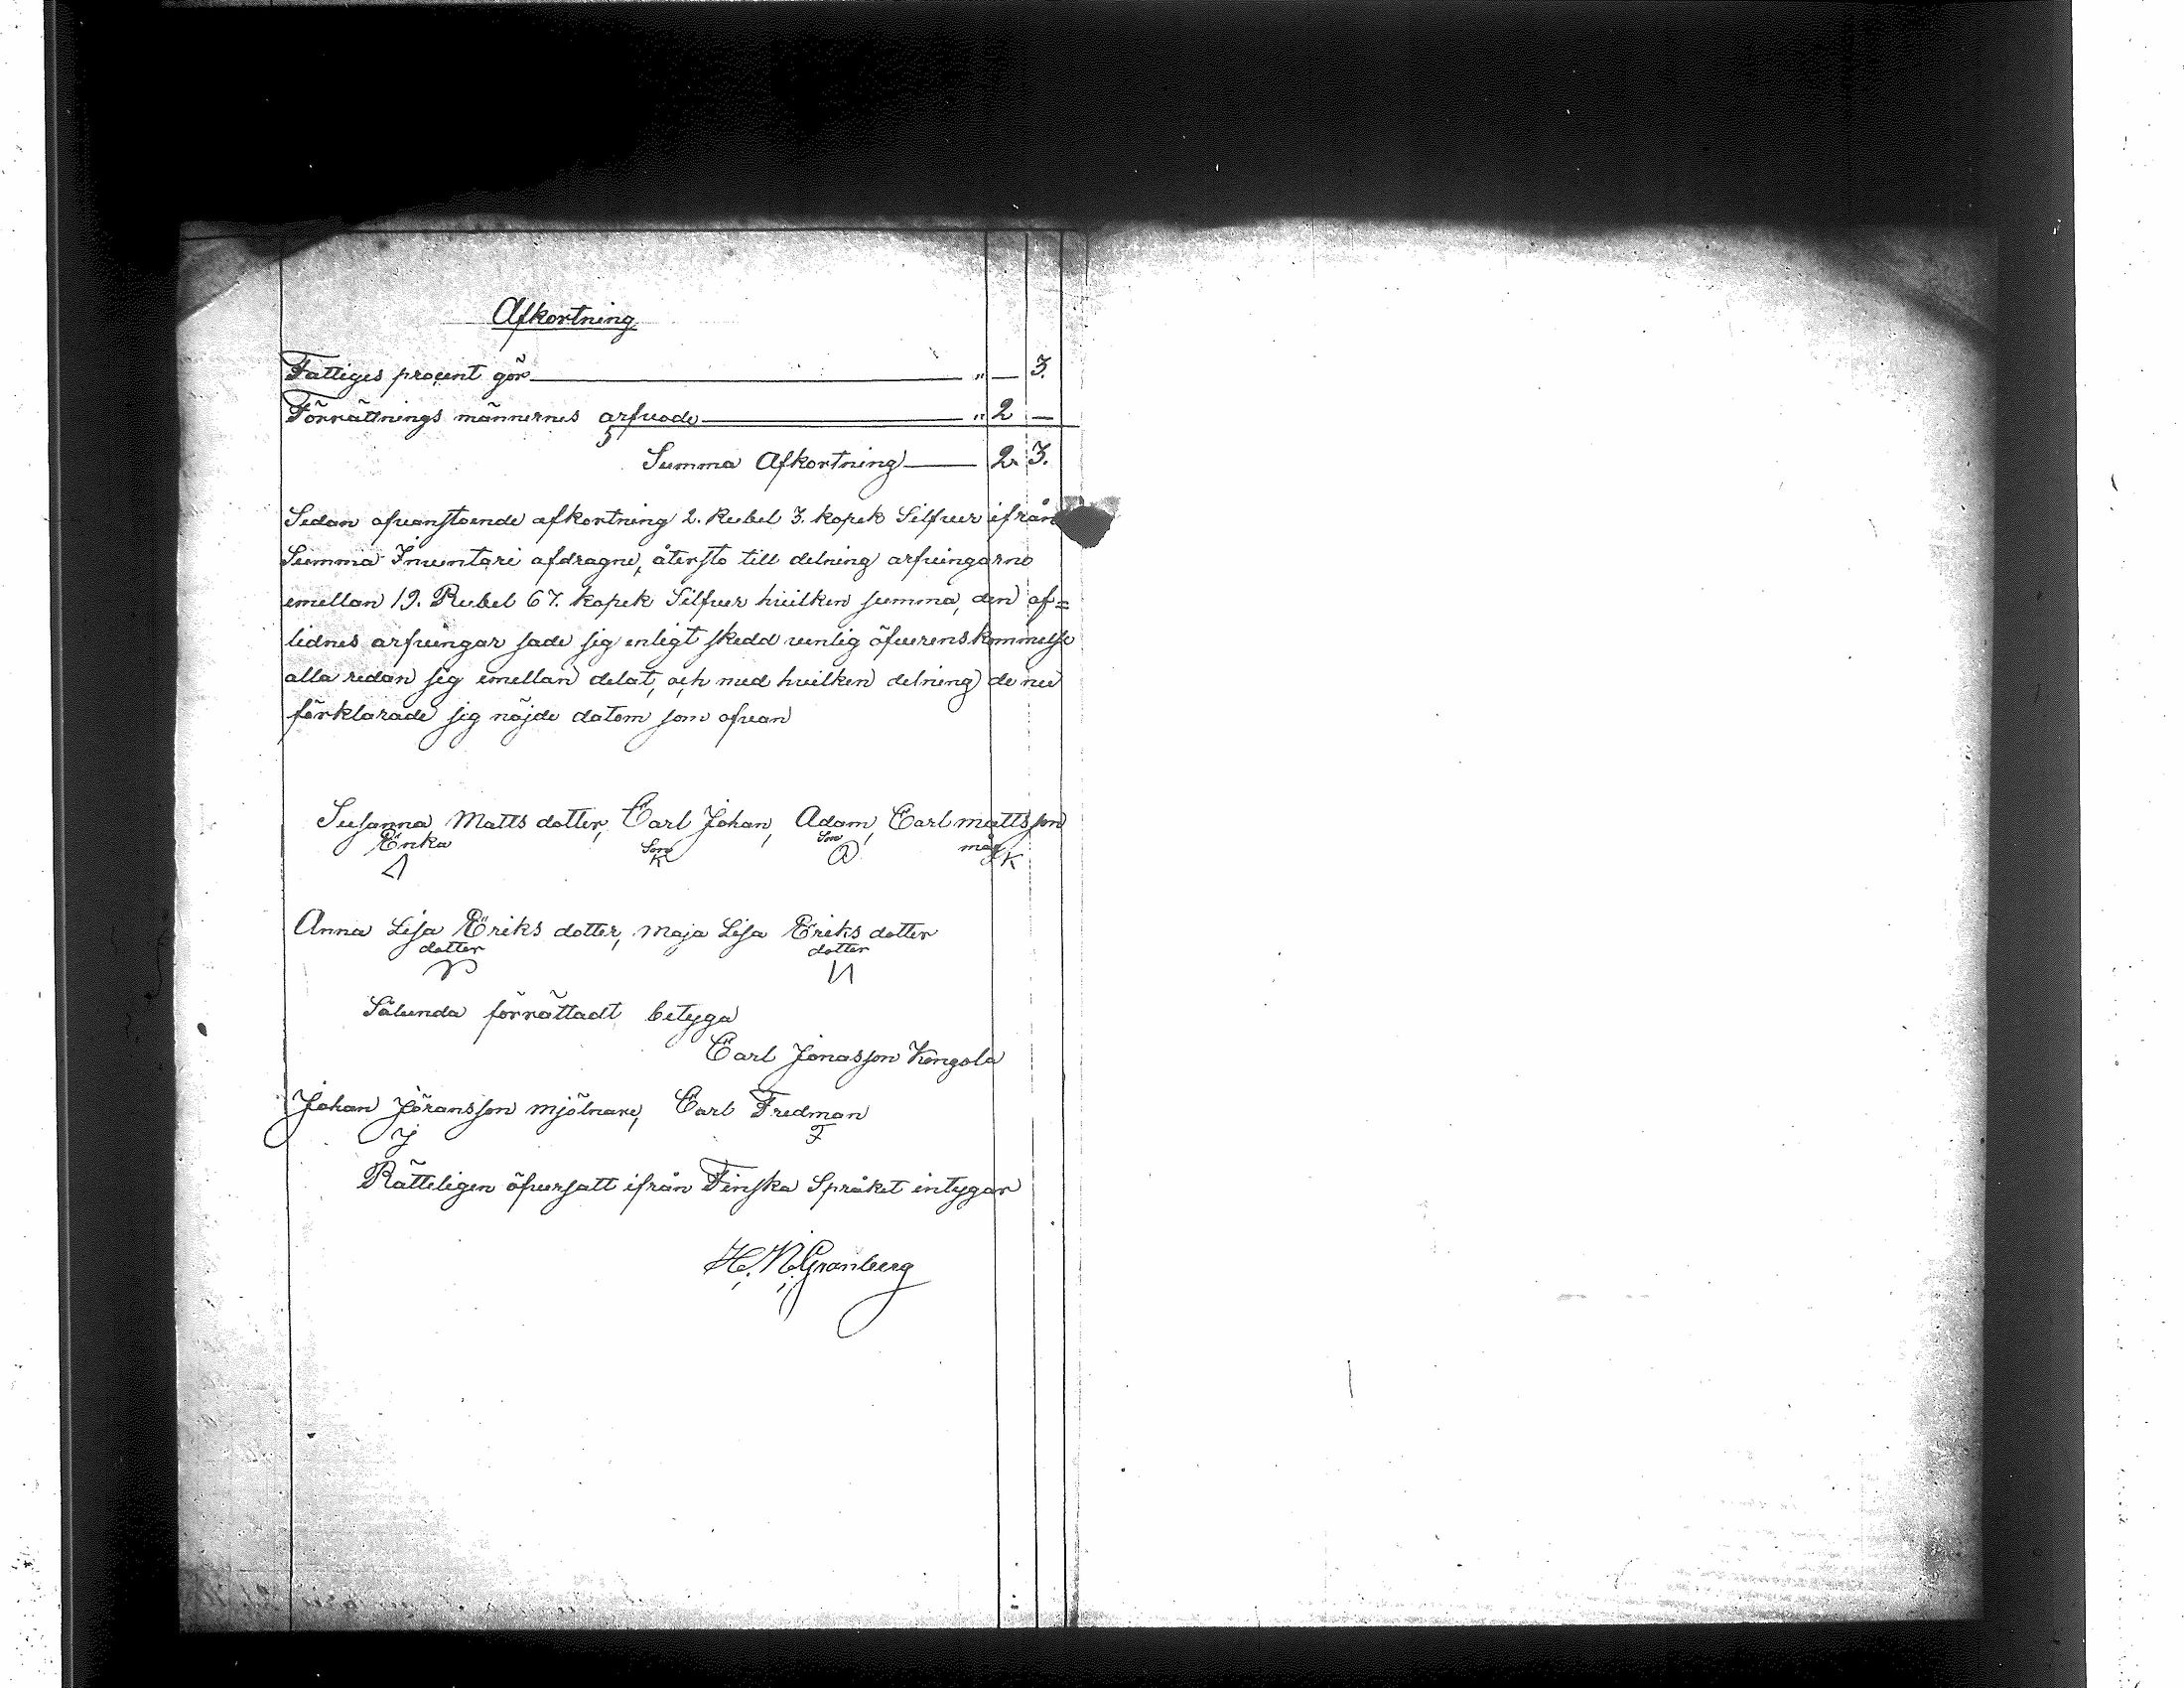 Afkortning
Fattiges procent gör " — 3.
Förrättnings männernes arfvode " 2 —
Summa Afkortning 2. 3.
Sedan ofvanstående afkortning 2. Rubel 3. kopek Silfver ifrån
Summa Inventari afdragne, återstå till delning arfvingarne
emellan 19. Rubel 67. kopek Silfver hvilken summa, den af=
lidnes arfvingar sade sig enligt skedd venlig öfverenskommelse
alla redan sig emellan delat, och med hvilken delning de nu
förklarade sig nöjde datom som ofvan
Susanna Matts dotter, Carl Johan, Adam, Carl mattsson
Enka Son Son måg
K A K
Anna Lisa Eriks dotter, Maja Lisa Eriks dotter
dotter dotter
Sålunda förrättadt betyga
Carl Jonasson Kengola
Johan Jöransson mjölnare, Carl Fredman
J F
Rätteligen öfversatt ifrån Finska Språket intygar
H. N. Granberg